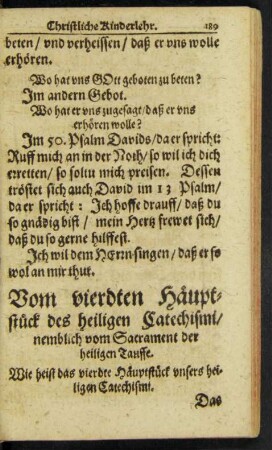 Christliche Kinderlehr. 189
beten / vnd verheissen / daß er vns wolle
erhören.
Wo hat vns GOtt geboten zu beten?
Im andern Gebot.
Wo hat er vns zugesagt / daß er vns
erhören wolle?
Im 50. Psalm Davids / da er spricht:
Ruff mich an in der Noth / so wil ich dich
erretten / so soltu mich preisen. Dessen
tröstet sich auch David im 13 Psalm /
da er spricht: Ich hoffe drauff / daß du
so gnädig bist / mein Hertz frewet sich /
daß du so gerne hilffest.
Ich wil dem HErrn singen / daß er so
wol an mir thut.
Vom vierdten Häupt-
stück des heiligen Catechismi /
nemblich vom Sacrament der
heiligen Tauffe.
Wie heist das vierdte Häuptstück vnsers hei-
ligen Catechismi.
Das